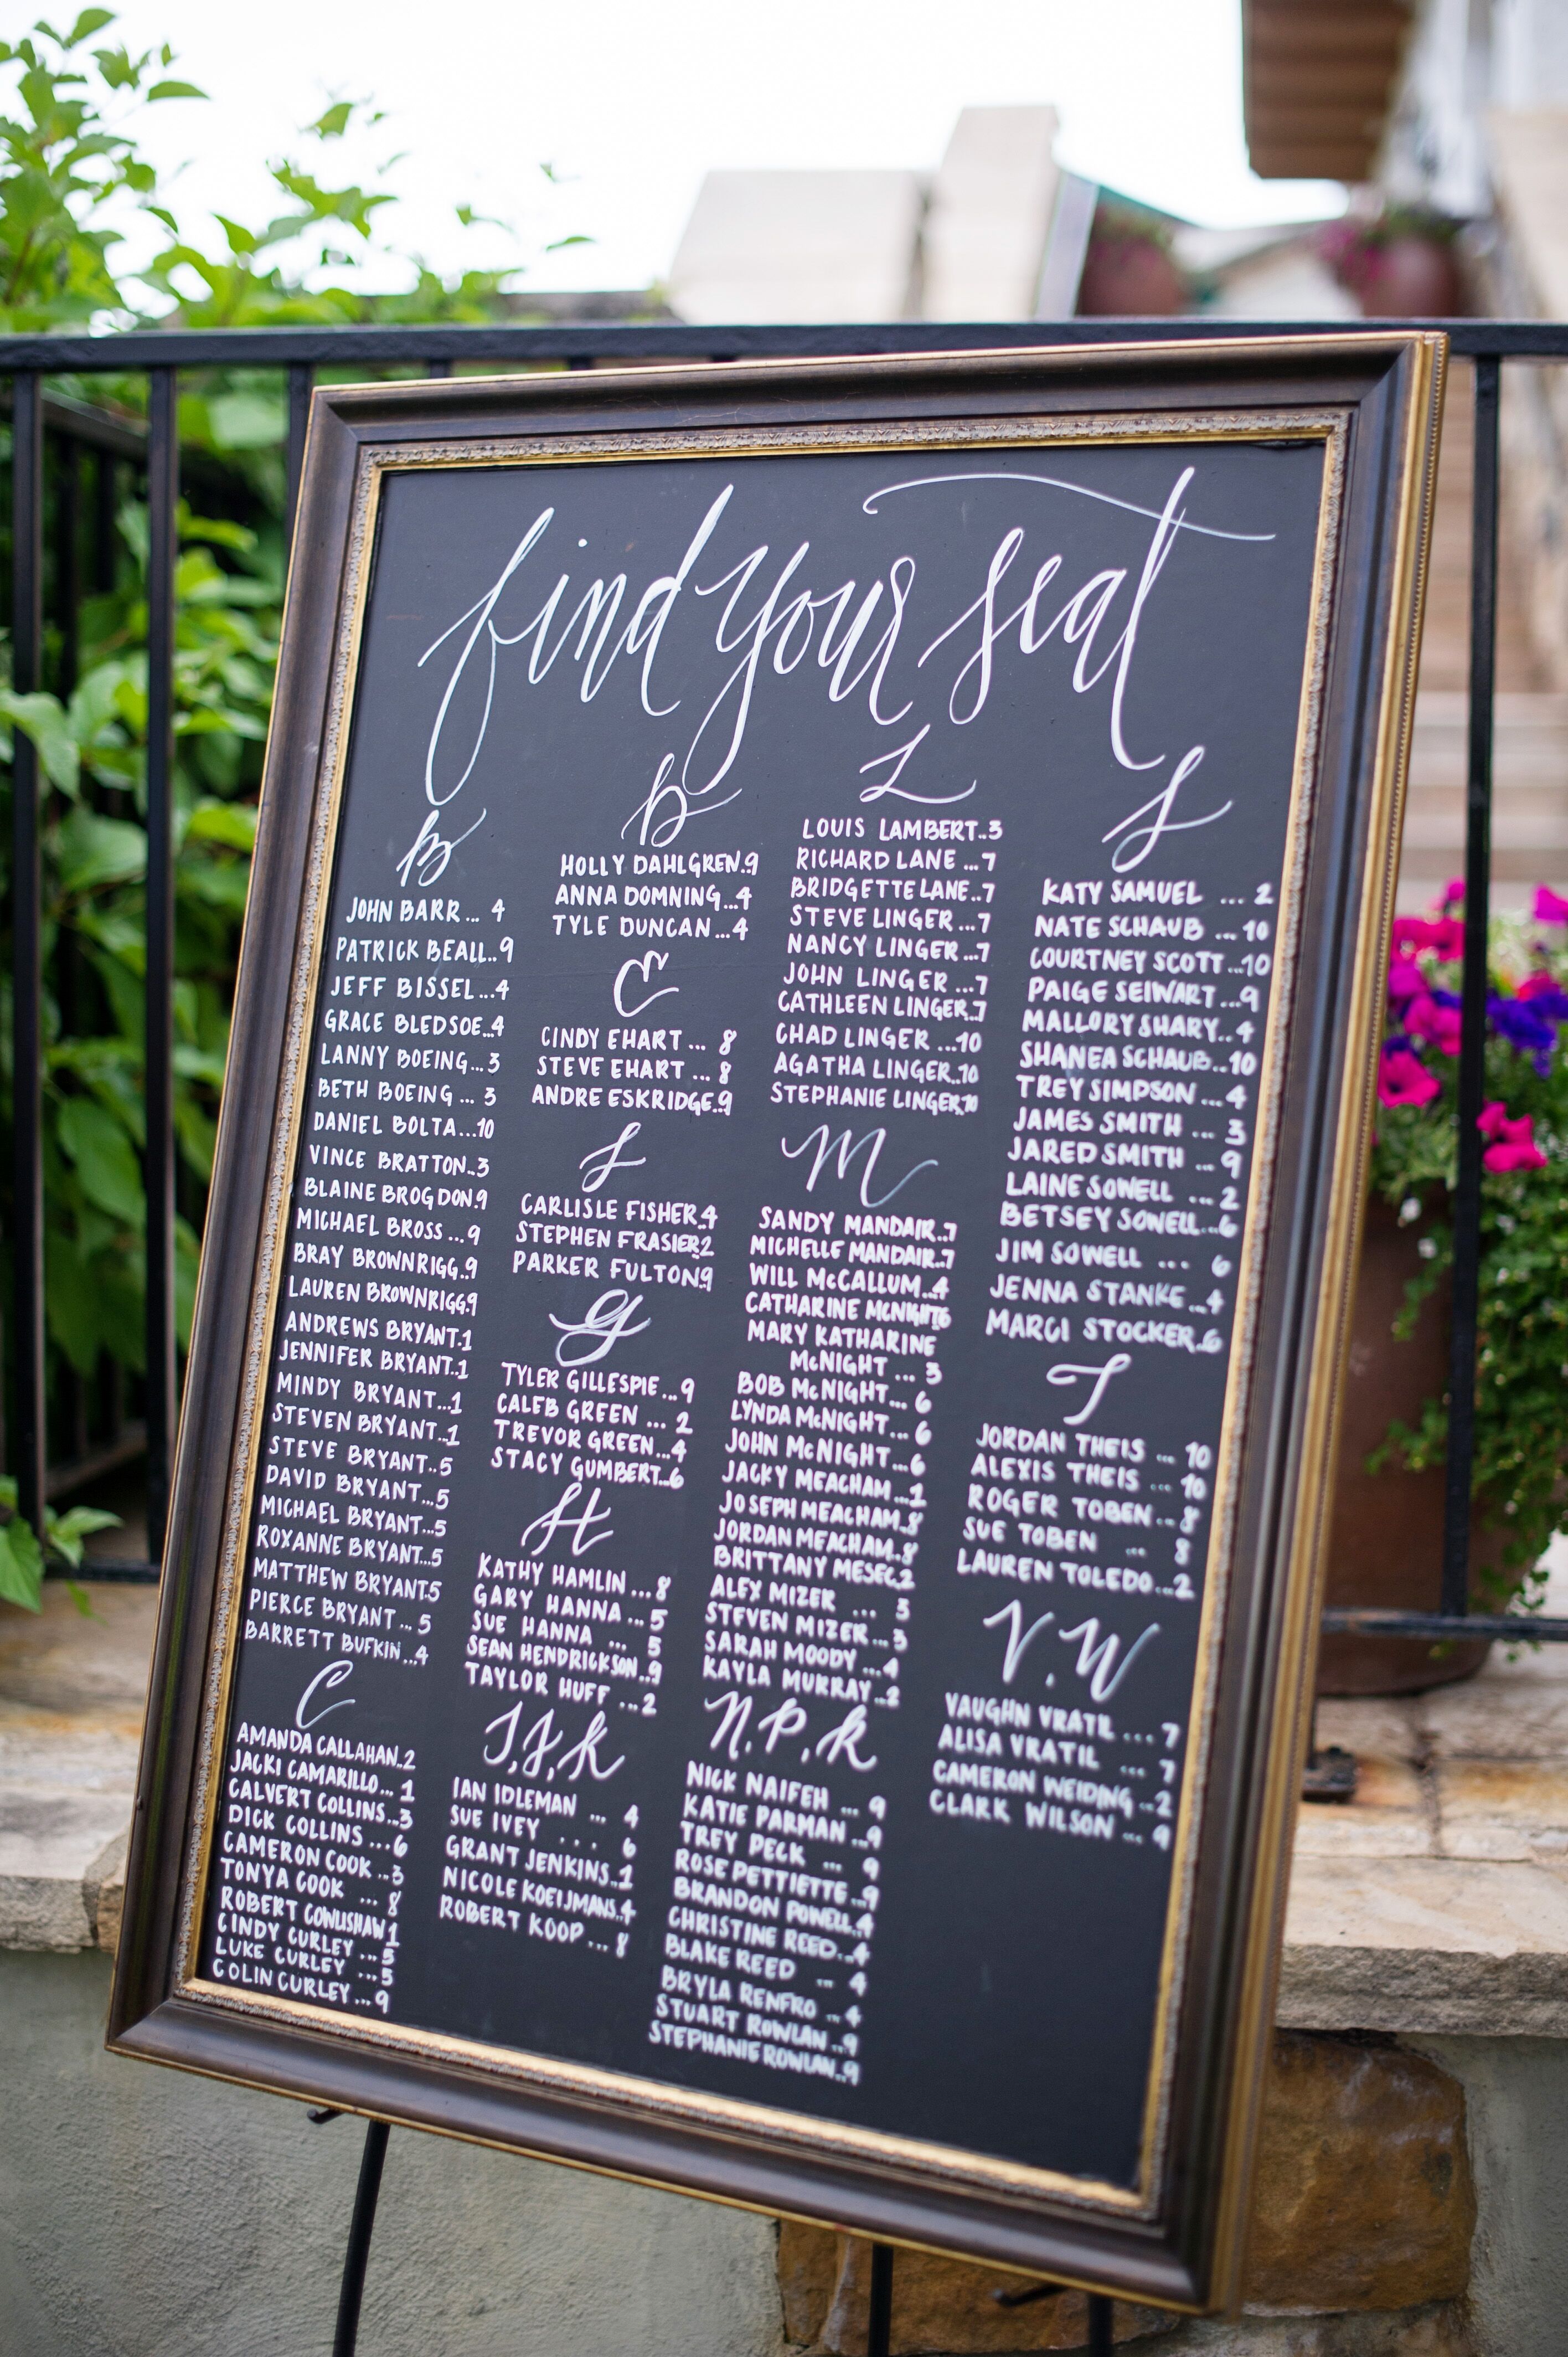 find your seat
B
JOHN BARR... 4
PATRICK BEALL..9
JEFF BISSEL...4
GRACE BLEDSOE..4
LANNY BOEING...3
BETH BOEING ... 3
DANIEL BOLTA...10
VINCE BRATTON..3
BLAINE BROGDON9
MICHAEL BROSS ...9
BRAY BROWNRIGG.9
LAUREN BROWNRIGG.9
ANDREWS BRYANT.1
JENNIFER BRYANT..1
MINDY BRYANT...1
STEVEN BRYANT..1
STEVE BRYANT..5
DAVID BRYANT...5
MICHAEL BRYANT...5
ROXANNE BRYANT...5
MATTHEW BRYANT.5
PIERCE BRYANT ... 5
BARRETT BUFKIN ...4
C
AMANDA CALLAHAN..2
JACKI CAMARILLO... 1
CALVERT COLLINS..3
DICK COLLINS ...6
CAMERON COOK ..3
TONYA COOK ... 8
ROBERT COWLISHAW 1
CINDY CURLEY ...5
LUKE CURLEY ...5
COLIN CURLEY...9
D
HOLLY DAHLGREN..9
ANNA DOMNING...4
TYLE DUNCAN ...4
E
CINDY EHART ... 8
STEVE EHART ... 8
ANDRE ESKRIDGE.9
F
CARLISLE FISHER.4
STEPHEN FRASIER.2
PARKER FULTON.9
G
TYLER GILLESPIE...9
CALEB GREEN ... 2
TREVOR GREEN...4
STACY GUMBERT...6
H
KATHY HAMLIN ...8
GARY HANNA ...5
SUE HANNA ... 5
SEAN HENDRICKSON..9
TAYLOR HUFF ...2
I, J, K
IAN IDLEMAN ... 4
SUE IVEY ... 6
GRANT JENKINS..1
NICOLE KOEIJMANS.4
ROBERT KOOP ... 8
L
LOUIS LAMBERT..3
RICHARD LANE ...7
BRIDGETTE LANE..7
STEVE LINGER ...7
NANCY LINGER ...7
JOHN LINGER ...7
CATHLEEN LINGER.7
CHAD LINGER ...10
AGATHA LINGER..10
STEPHANIE LINGER.10
M
SANDY MANDAIR..7
MICHELLE MANDAIR..7
WILL McCALLUM..4
CATHARINE McNIGHT6
MARY KATHARINE
McNIGHT ... 3
BOB McNIGHT... 6
LYNDA McNIGHT...6
JOHN McNIGHT...6
JACKY MEACHAM...1
JOSEPH MEACHAM.8
JORDAN MEACHAM..8
BRITTANY MESEC.2
ALEX MIZER ... 3
STEVEN MIZER...3
SARAH MOODY ...4
KAYLA MURRAY..2
N, P, R
NICK NAIFEH ... 9
KATIE PARMAN ..9
TREY PECK ... 9
ROSE PETTIETTE..9
BRANDON POWELL.4
CHRISTINE REED...4
BLAKE REED ... 4
BRYLA RENFRO ..4
STUART ROWLAN ..9
STEPHANIE ROWLAN..9
S
KATY SAMUEL ... 2
NATE SCHAUB ... 10
COURTNEY SCOTT...10
PAIGE SEIWART...9
MALLORY SHARY..4
SHANEA SCHAUB..10
TREY SIMPSON ...4
JAMES SMITH ... 3
JARED SMITH ... 9
LAINE SOWELL ... 2
BETSEY SOWELL...6
JIM SOWELL ... 6
JENNA STANKE...4
MARCI STOCKER.6
T
JORDAN THEIS ... 10
ALEXIS THEIS ... 10
ROGER TOBEN...8
SUE TOBEN ... 8
LAUREN TOLEDO...2
V, W
VAUGHN VRATIL ... 7
ALISA VRATIL ... 7
CAMERON WEIDING ..2
CLARK WILSON ... 9